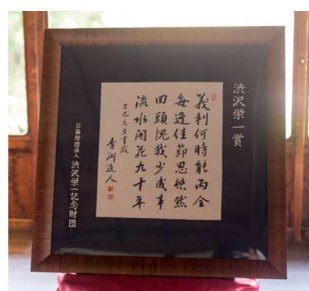 渋沢栄一賞
義利何時能両全
毎逢佳節思悠然
回頭愧我少成事
流水開花九十年
己巳元旦書感
青淵逸人
公益財団法人 渋沢栄一記念財団